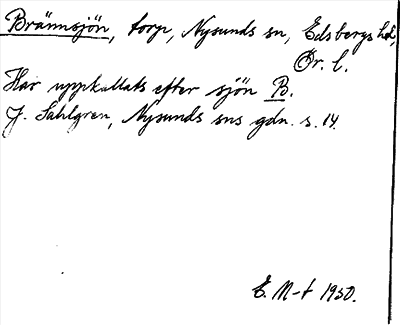 Brännsjön, torp, Nysunds sn, Edsbergs hd,
Ör. l.
Har uppkallats efter sjön B.
J. Sahlgren, Nysunds sns gdn. s. 14.
E. M-t 1930.